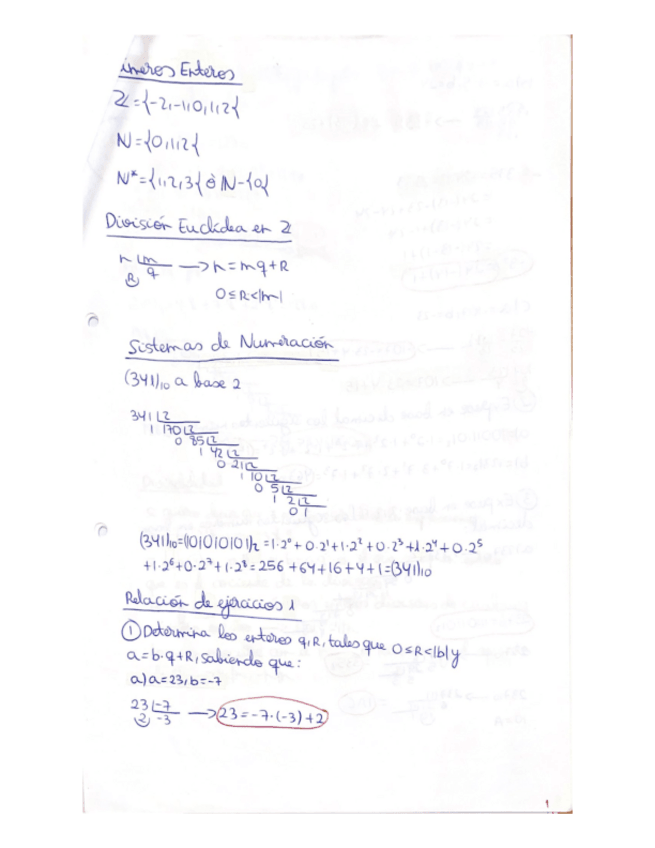 úmeros Enteros
Z={-2,-1,0,1,2{
N={0,1,2{
N*={1,2,3{ ó N-{0{
División Euclídea en Z
n m → n=mq+R
R q
0≤R<|m|
Sistemas de Numeración
(341)10 a base 2
341 2
1 170 2
0 85 2
1 42 2
0 21 2
1 10 2
0 5 2
1 2 2
0 1
(341)10=(101010101)2=1·2⁰+0·2¹+1·2²+0·2³+1·2⁴+0·2⁵
+1·2⁶+0·2⁷+1·2⁸=256+64+16+4+1=(341)10
Relación de ejercicios 1
① Determina los enteros q,R, tales que 0≤R<|b| y
a=b·q+R, sabiendo que:
a) a=23, b=-7
23 -7 → 23=-7·(-3)+2
2 -3
1